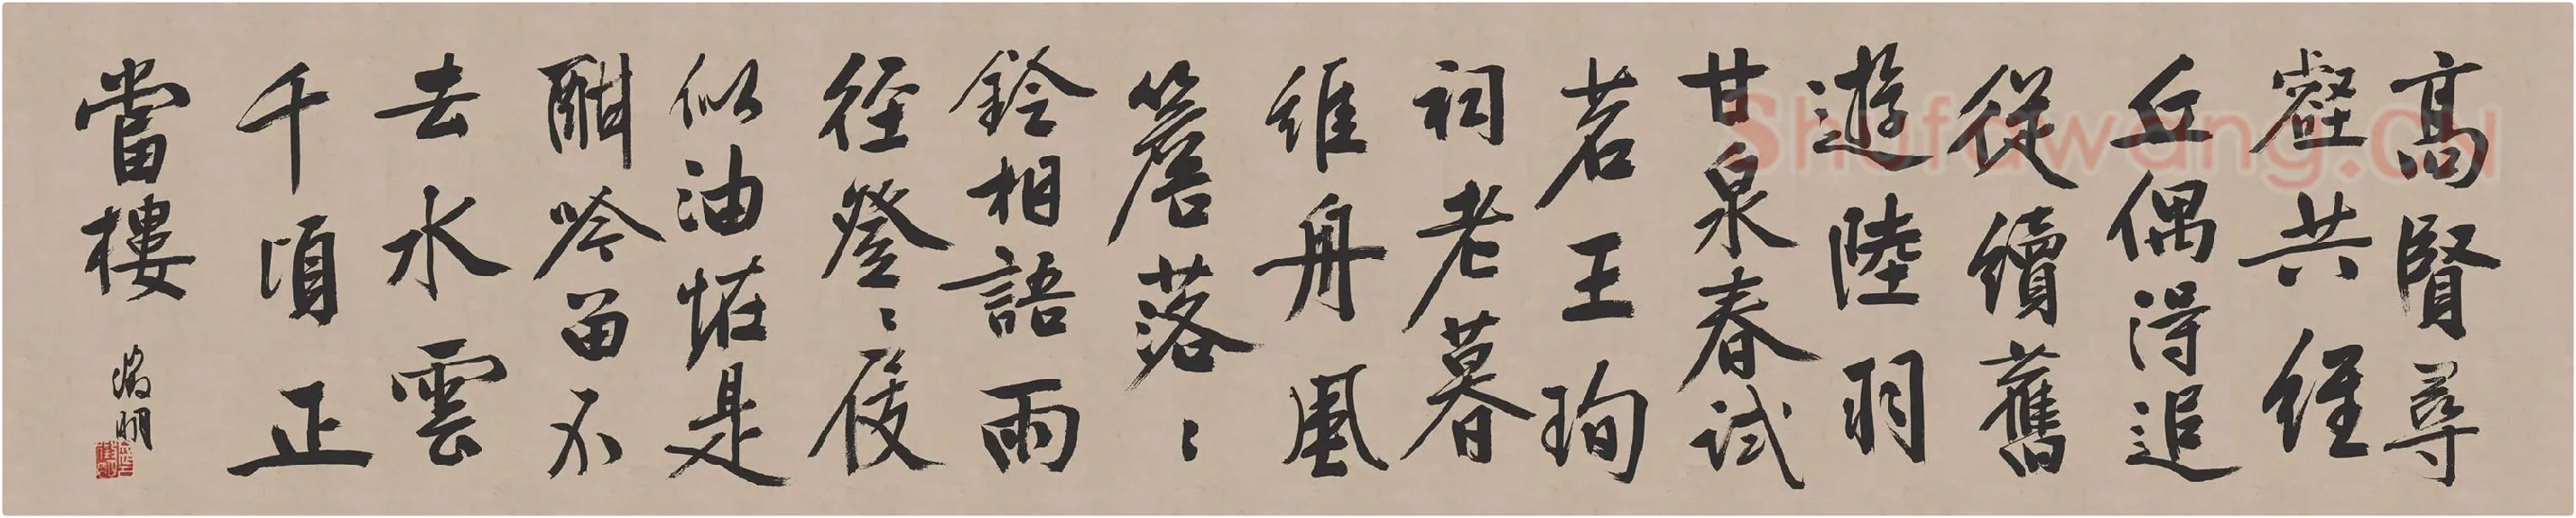 高賢尋
壑共經
丘偶得追
從續舊
遊陸羽
甘泉春試
茗王珣
祠老暮
維舟風
簷落〻
鈴相語雨
徑登〻屐
似油恠是
酣吟留不
去水雲
千頃正
當樓
徵明
Shufawang.CN